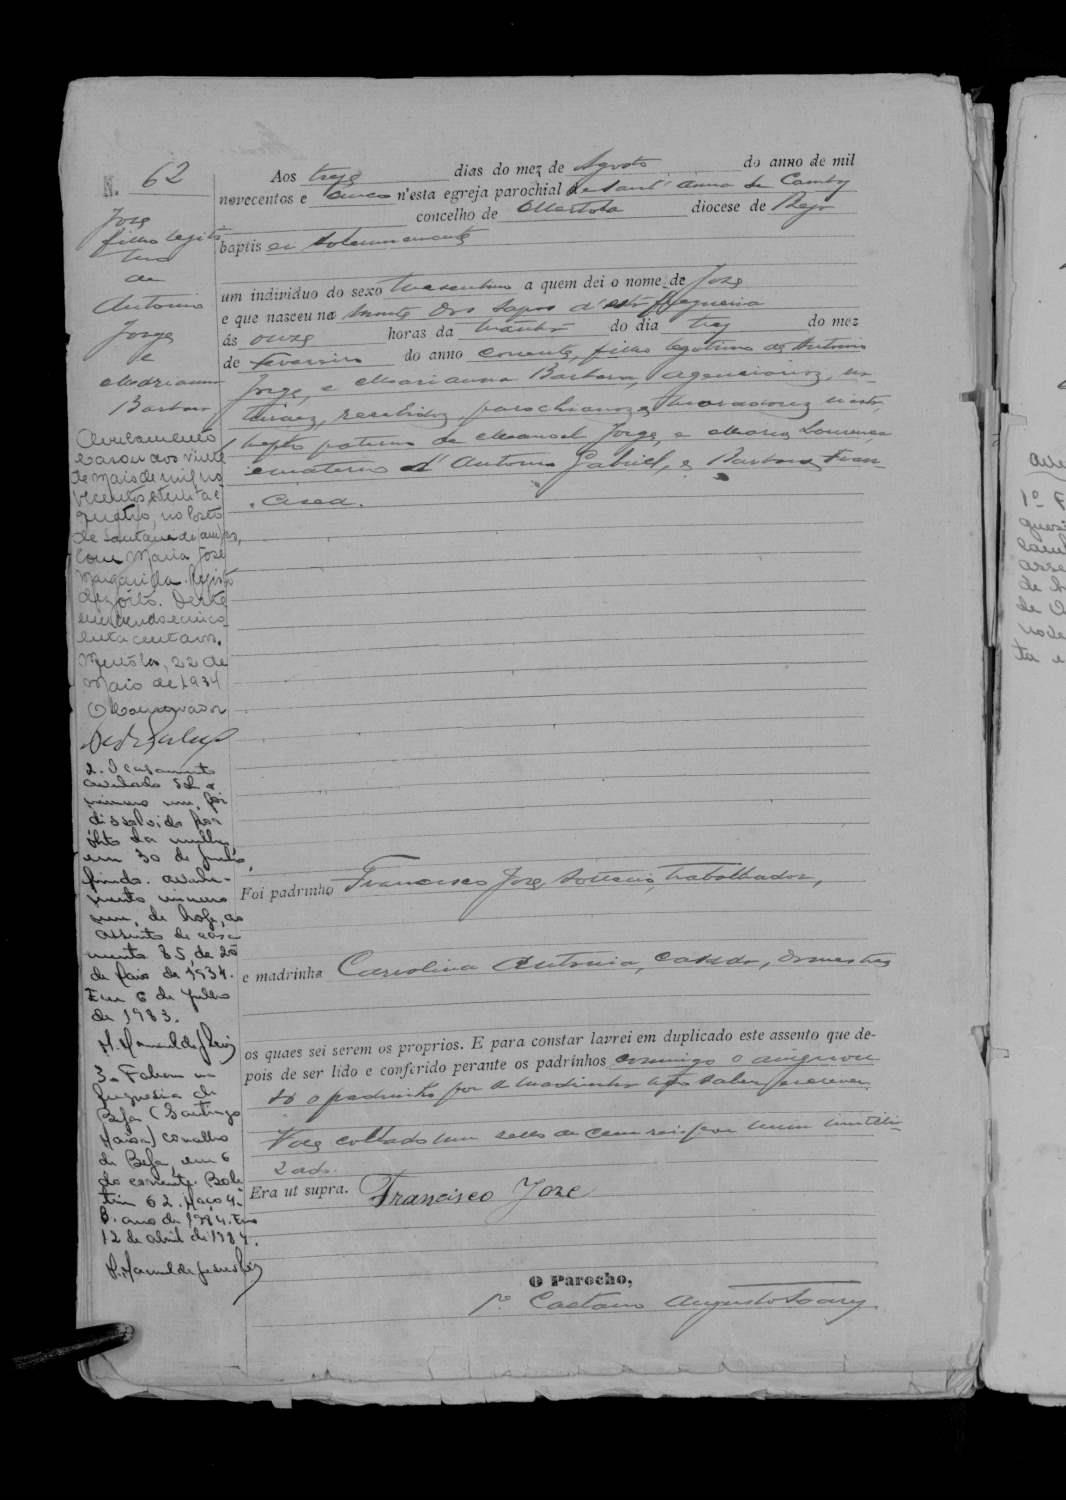 N. 62
Jose
filho legiti
mo
de
Antonio
Jorge
e
Marianna
Barbara
Aos treze dias do mez de Agosto do anno de mil
novecentos e cinco n'esta egreja parochial de Sant'Anna de Cambas
concelho de Mertola diocese de Beja
baptisei solemnemente
um individuo do sexo masculino a quem dei o nome de Jose
e que nasceu no monte dos Sapos d'esta freguesia
ás onze horas da manhã do dia trez do mez
de fevereiro do anno corrente, filho legitimo de Antonio
Jorge, e Marianna Barbara, na-
turaes, recebidos, parochianos e moradores n'esta,
neto paterno de Manoel Jorge, e Maria Lourença
e materno d'Antonio Gabriel, e Barbara Fran-
cisca.
Foi padrinho Francisco Jose, solteiro, trabalhador,
e madrinha Carolina Antonia, casada, domestica
os quaes sei serem os proprios. E para constar lavrei em duplicado este assento que de-
pois de ser lido e conferido perante os padrinhos commigo o assignou
só o padrinho por a madrinha não saber escrever.
Vae collado um sello de cem reis por mim inutili-
zado.
Era ut supra. Francisco Jose
O Parocho,
P.e Caetano Augusto Soares
Averbamento
Casou aos vinte
de maio de mil no
vecentos e trinta e
quatro, no Posto
de Santana de Cambas,
com Maria José
Margarida. Registo
dezoito. Deste
emolumento cinco
enta centavos.
Mertola, 22 de
Maio de 1934
O Conservador
2. O casamento
averbado sob o
numero um, foi
dissolvido por
óbito da mulher,
em 30 de Junho
findo. averba-
mento numero
um, de hoje, ao
assento de casa
mento 85, de 20
de Maio de 1934.
Em 6 de Julho
de 1983.
3. Faleceu na
freguesia de
Beja (Santiago
Maior) concelho
de Beja, em 6
do corrente. Bole
tim 62. Maço 4.
B. ano de 1984. Em
12 de abril de 1984.